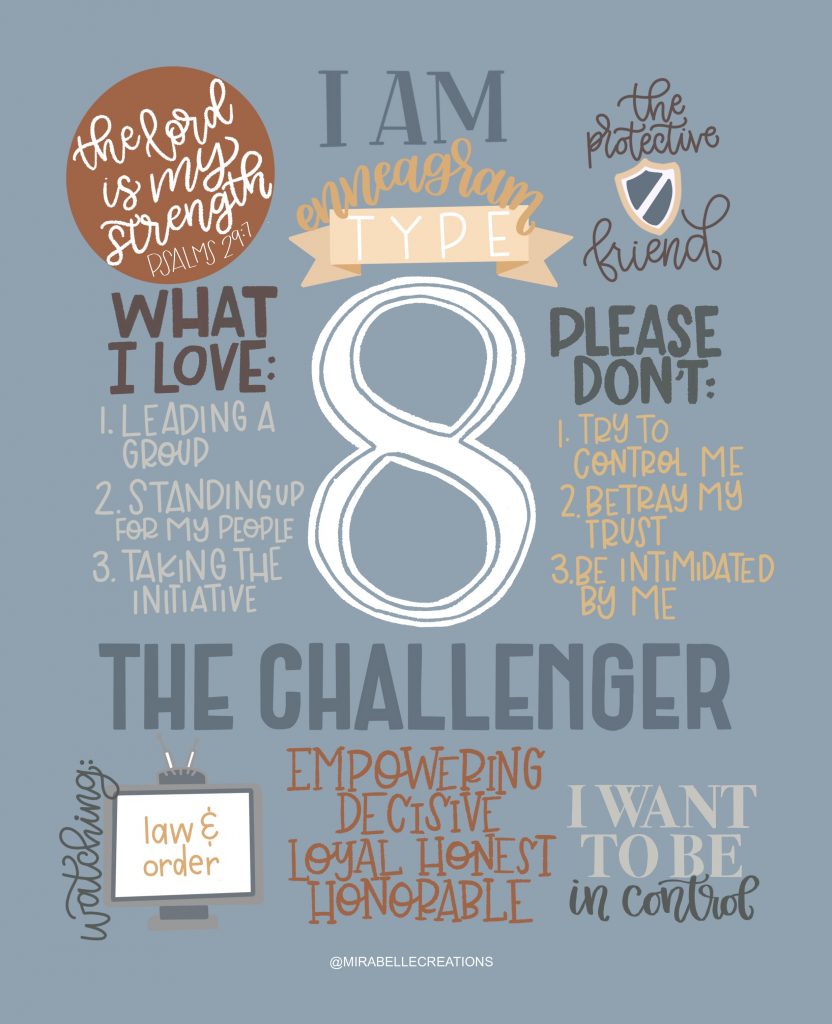 the lord
is my
strength
PSALMS 29:7
I AM
enneagram
TYPE
8
the
protective
friend
WHAT
I LOVE:
1. LEADING A
GROUP
2. STANDING UP
FOR MY PEOPLE
3. TAKING THE
INITIATIVE
PLEASE
DON'T:
1. TRY TO
CONTROL ME
2. BETRAY MY
TRUST
3. BE INTIMIDATED
BY ME
THE CHALLENGER
watching:
law &
order
EMPOWERING
DECISIVE
LOYAL HONEST
HONORABLE
I WANT
TO BE
in control
@MIRABELLECREATIONS